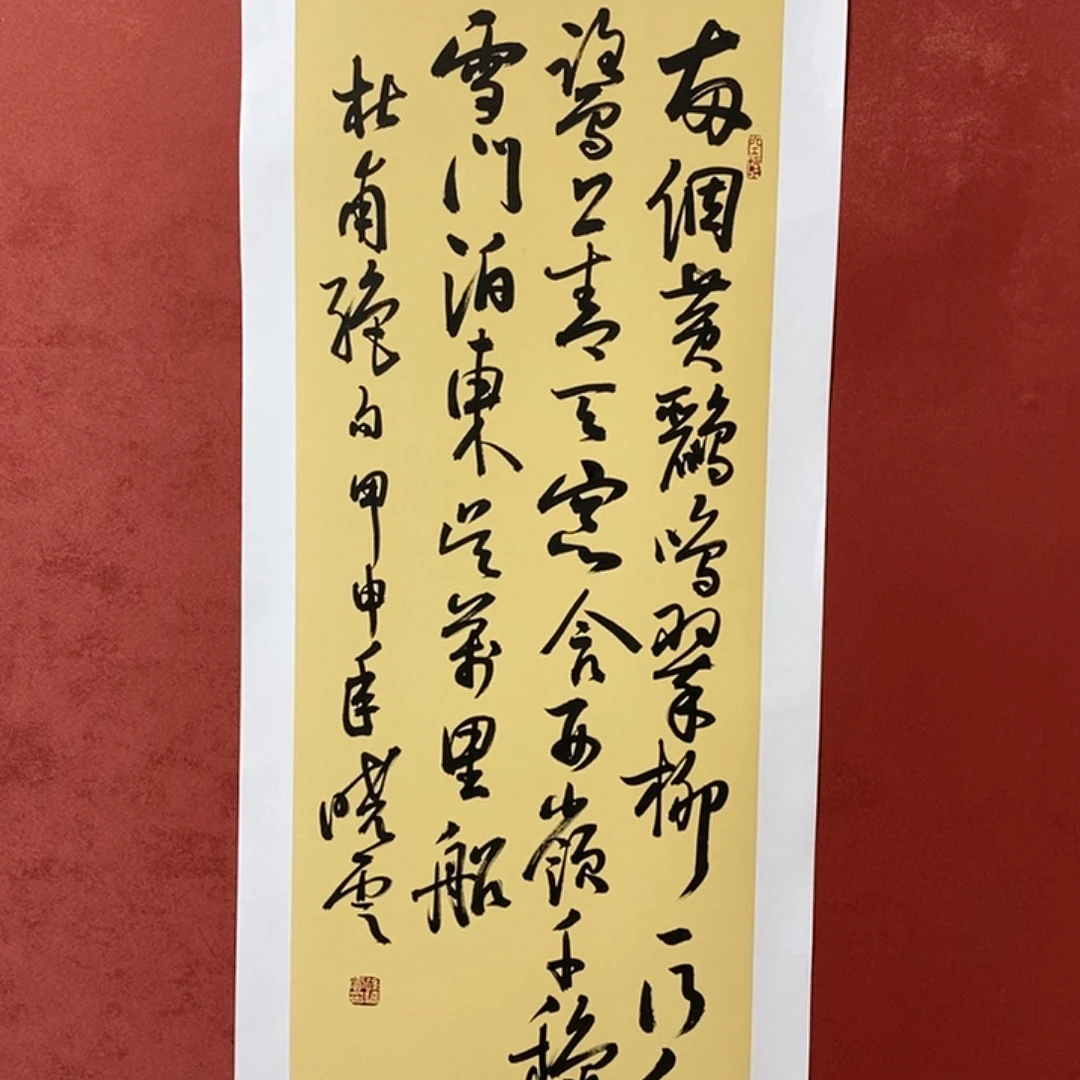 两個黄鸝鳴翠柳一行
鷺上青天窓含西嶺千
雪門泊東吴萬里船
杜甫絶句甲申年曉雲